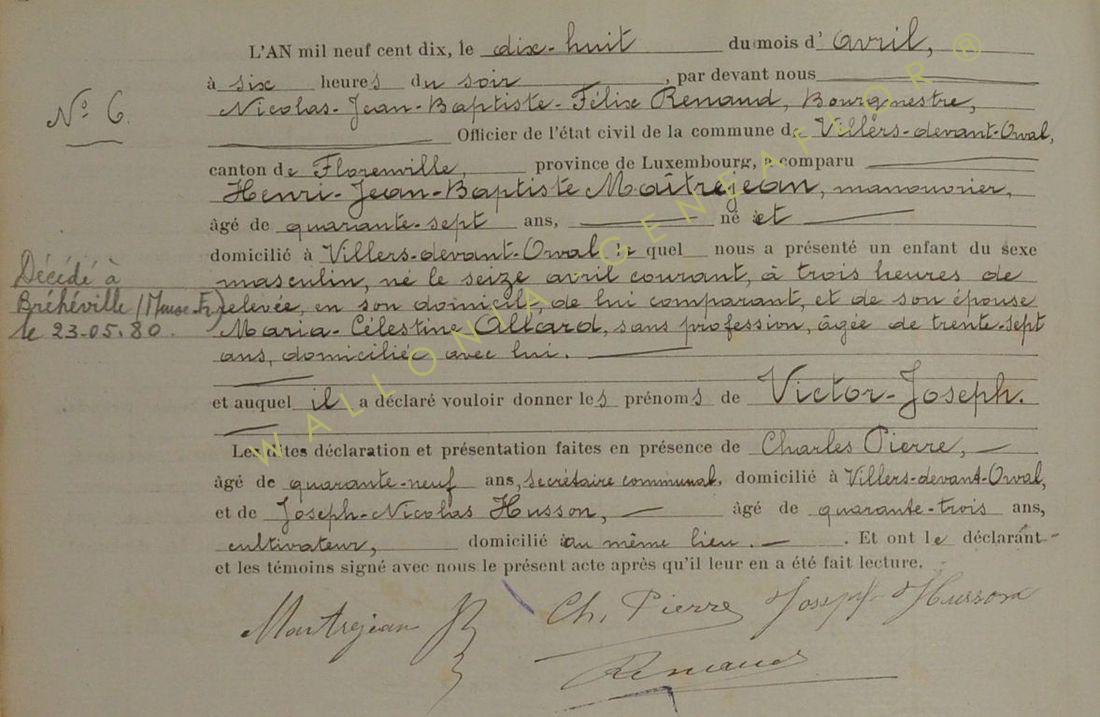 L'AN mil neuf cent dix, le dix-huit du mois d'avril,
à six heures du soir, par devant nous
Nicolas-Jean-Baptiste-Félix Renaud, Bourgmestre,
Officier de l'état civil de la commune de Villers-devant-Orval,
canton de Florenville, province de Luxembourg, a comparu
Henri-Jean-Baptiste Maîtrejean, manouvrier,
âgé de quarante-sept ans, né et
domicilié à Villers-devant-Orval le quel nous a présenté un enfant du sexe
masculin, né le seize avril courant, à trois heures de
relevée, en son domicile, de lui comparant, et de son épouse
Maria-Célestine Allard, sans profession, âgée de trente-sept
ans, domiciliée avec lui.
et auquel il a déclaré vouloir donner les prénoms de Victor-Joseph.
Les dites déclaration et présentation faites en présence de Charles Pierre,
âgé de quarante-neuf ans, secrétaire communal, domicilié à Villers-devant-Orval,
et de Joseph-Nicolas Husson, âgé de quarante-trois ans,
cultivateur, domicilié au même lieu. Et ont le déclarant
et les témoins signé avec nous le présent acte après qu'il leur en a été fait lecture.
Maitrejean JB Ch. Pierre Joseph Husson
Renaud
N° 6.
Décédé à
Bréhéville (Meuse-Fr)
le 23-05.80.
WALLONIA GENEAFOR ®